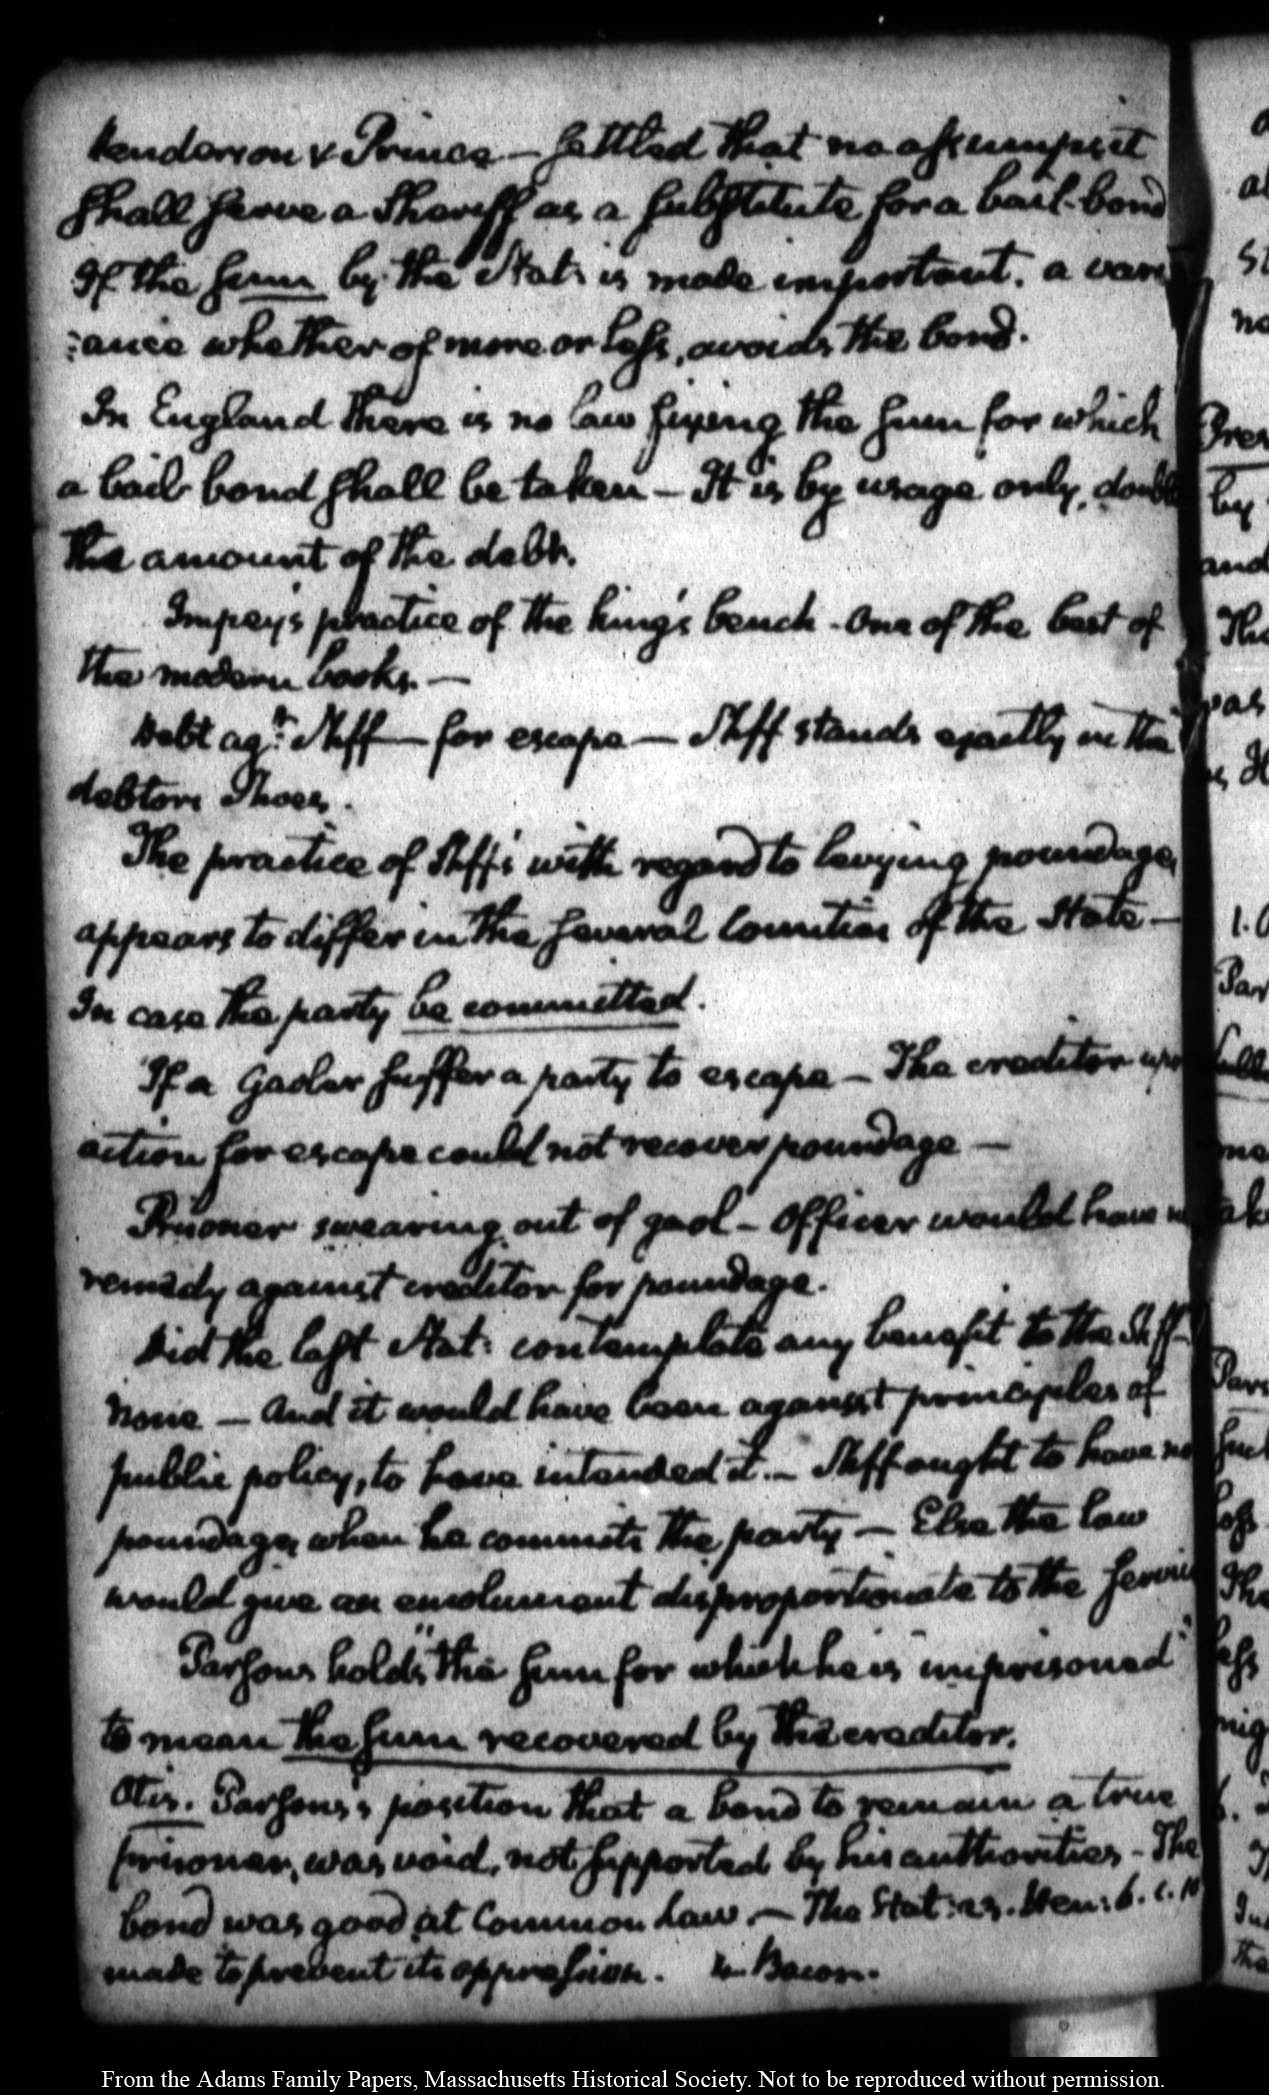 Henderson & Prince — Settled that no assumpsit
shall serve a Sheriff as a substitute for a bail-bond
If the sum by the Stat: is made important. a vari
:ance whether of more or less, avoids the bond.
In England there is no law fixing the sum for which
a bail bond shall be taken — It is by usage only, double
the amount of the debt.
Impey's practice of the king's bench - One of the best of
the modern books. —
Debt agt. Shff — for escape — Shff stands exactly in the
debtors Shoes.
The practice of Shffs' with regard to levying poundage,
appears to differ in the several Counties of the State —
In case the party be committed.
If a Gaoler suffer a party to escape — The creditor upo
action for escape could not recover poundage —
Prisoner swearing out of gaol — Officer would have n
remedy against creditor for poundage.
Did the last Stat: contemplate any benefit to the Shff-
None — And it would have been against principles of
public policy, to have intended it. — Shff ought to have no
poundage, when he commits the party — Else the law
would give an emolument disproportionate to the service
Parsons holds "the sum for which he is imprisoned"
to mean the sum recovered by the creditor.
Otis. Parsons's position that a bond to remain a true
prisoner, was void, not supported by his authorities - The
bond was good at Common Law. — The Stat: 23. Hen: 6. c. 10
made to prevent its oppression. 4 Bacon.
From the Adams Family Papers, Massachusetts Historical Society. Not to be reproduced without permission.